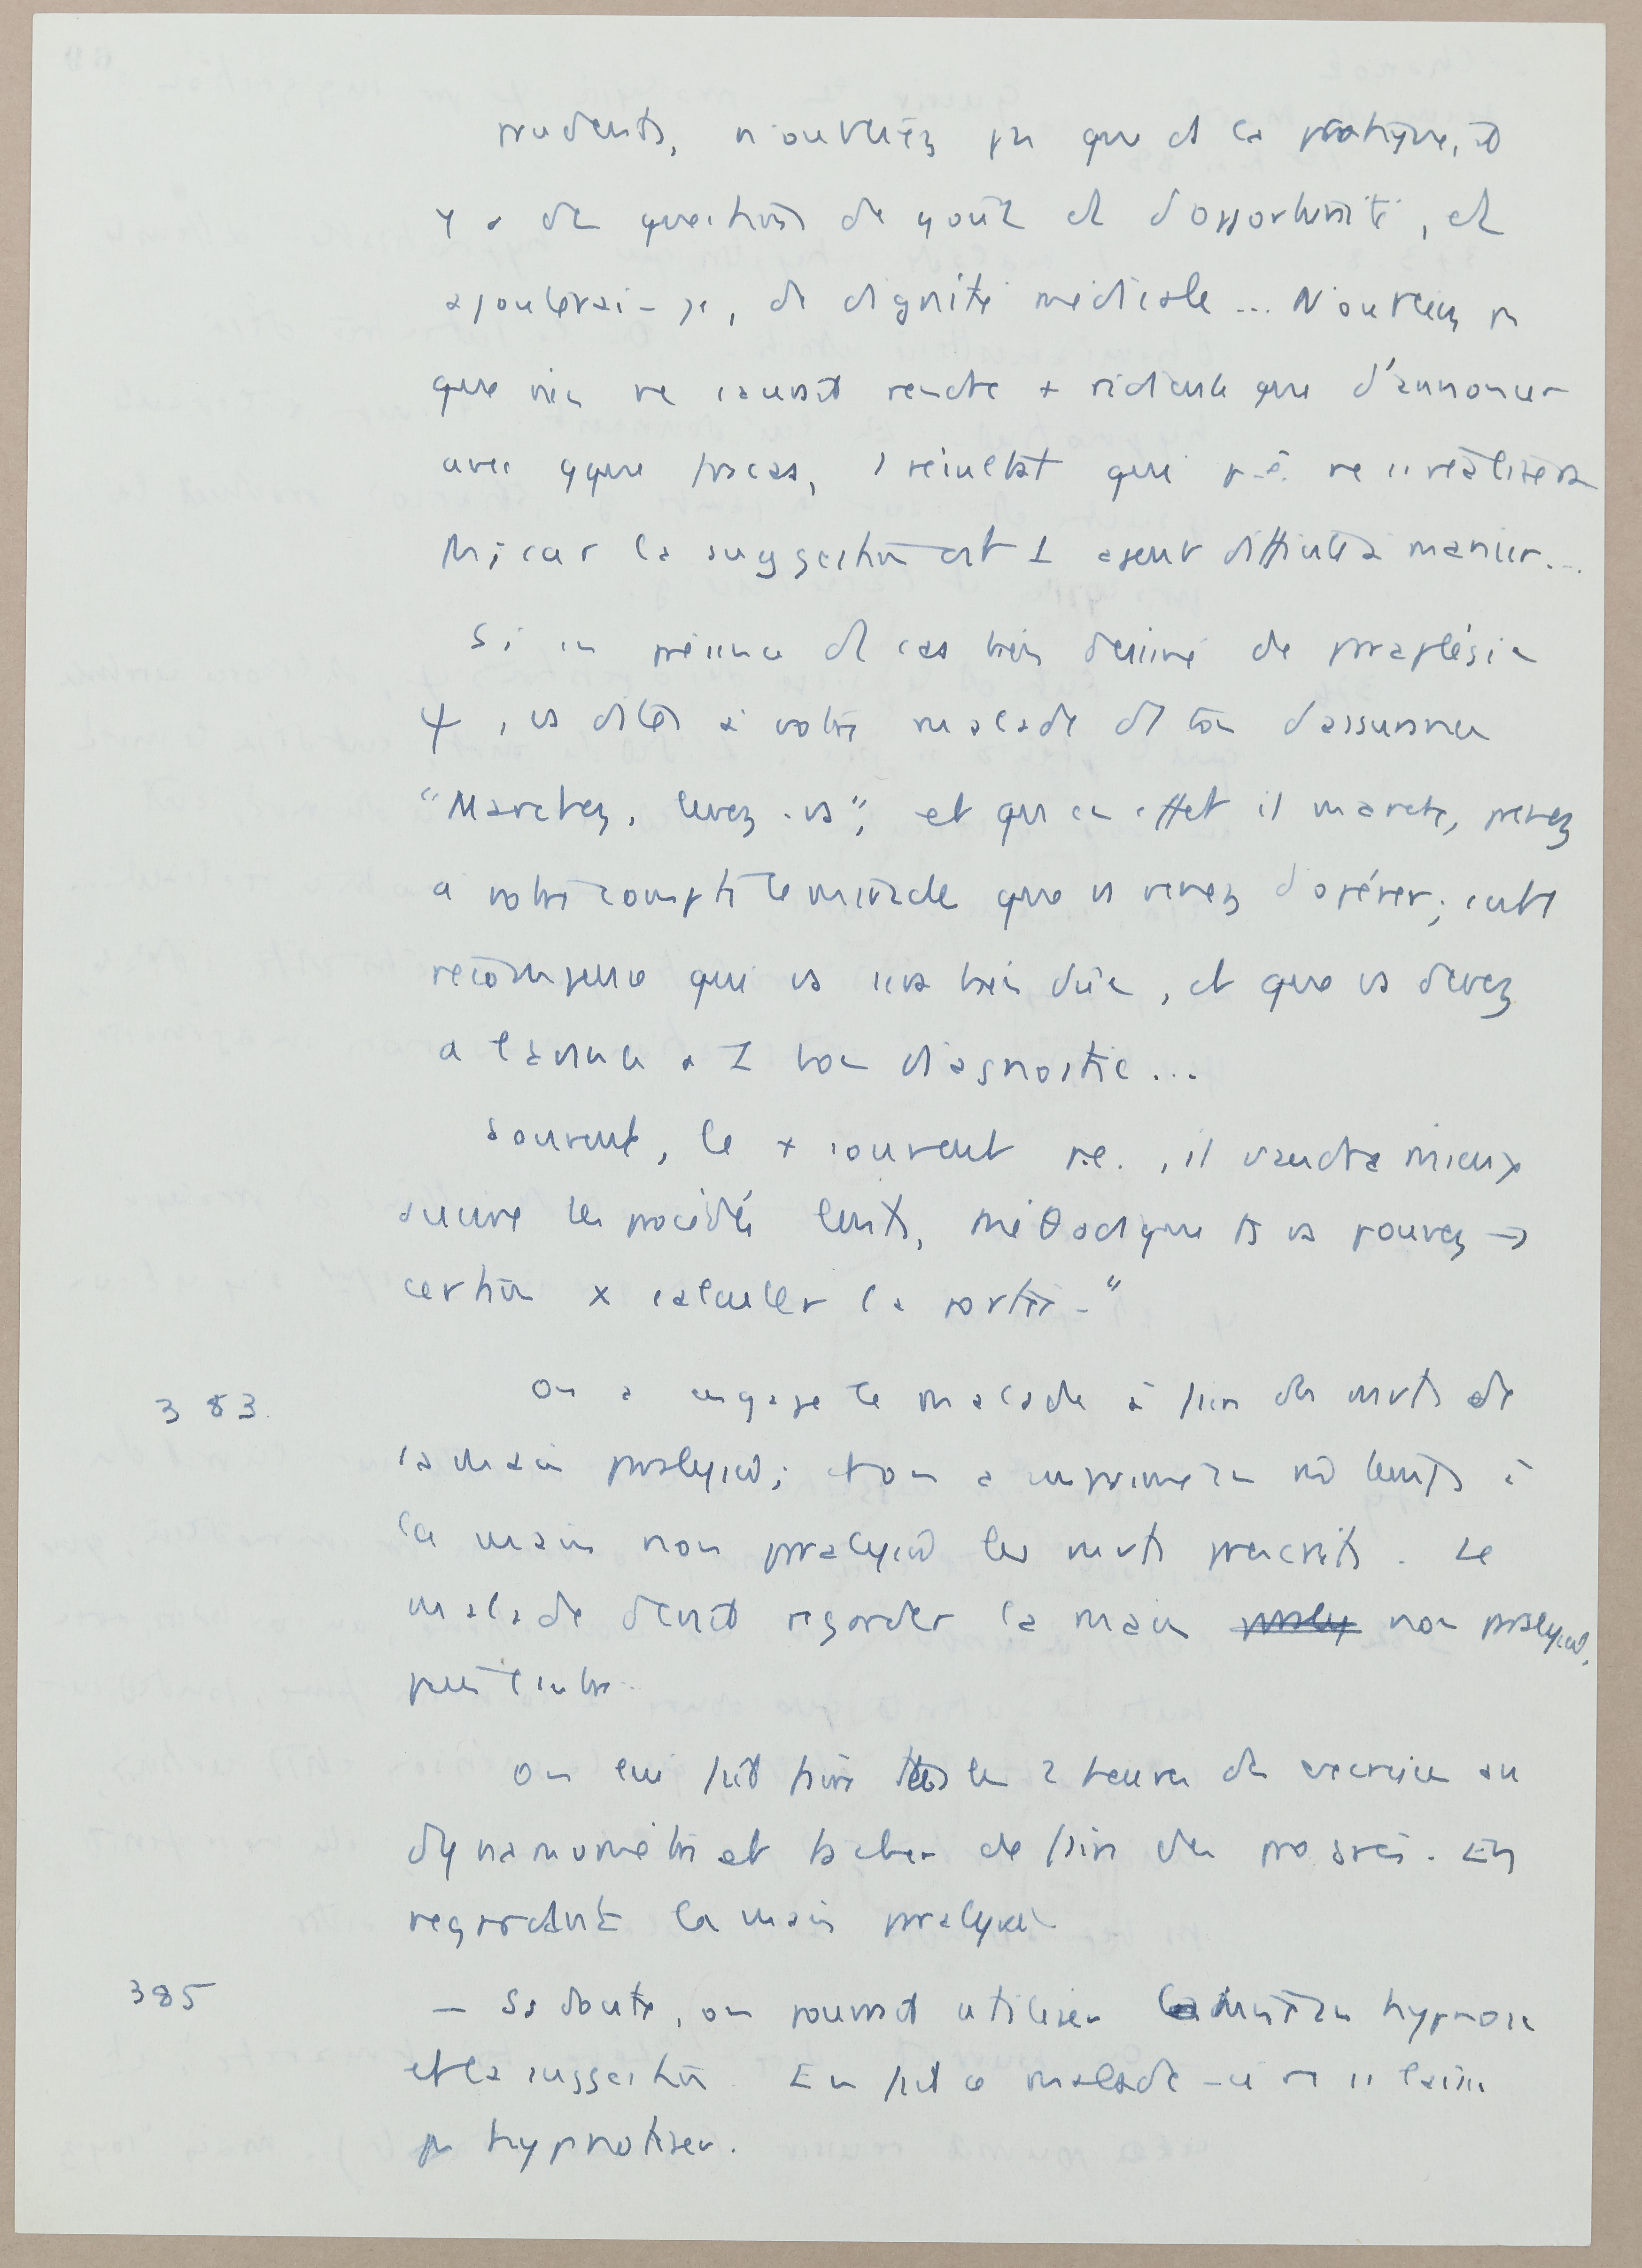 prudents, n'oubliez pas que ds la pratique, il
y a des questions de goût et d'opportunité, et
ajouterai-je, de dignité médicale... N'oubliez pas
que rien ne saurait rendre + ridicule que d'annoncer
avec qque fracas, 1 résultat qui p-ê. ne se réalisera
pas; car la suggestion est 1 agent difficile à manier...
Si en présence d'1 cas bien dessiné de paraplégie
ψ, vs dites à votre malade d'1 ton d'assurance
"Marchez, levez-vs", et qu'en effet il marche, prenez
à votre compte le miracle que vs venez d'opérer; cette
récompense qui vs sera bien dûe, et que vs devez
à 1 bon diagnostic...
Souvent, le + souvent me., il vaudra mieux
suivre les procédés lents, méθodiques ts vs pouvez →
calculer la portée."
383.
On a engagé le malade à faire des mvts de
la main paralysée; et on a imprimé
la main non paralysée les mvts prescrits. Le
malade devait regarder la main non paralysée,
puis l'autre.
On lui fait faire ttes les 2 heures des exercices au
dynamomètre et tâcher de faire des progrès. En
regardant la main paralysée.
385
— Ss doute, on pourrait utiliser hypnose
et la suggestion. En fait ce malade-ci ne se laisse
pas hypnotiser.